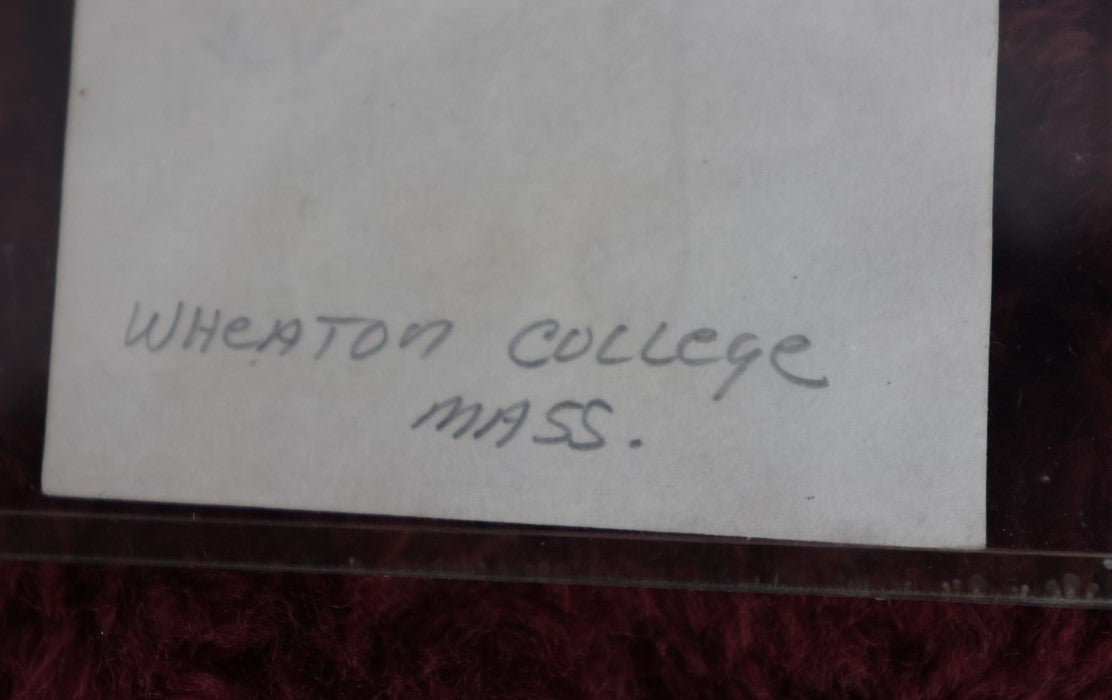 WHeATON COLLege
MASS.